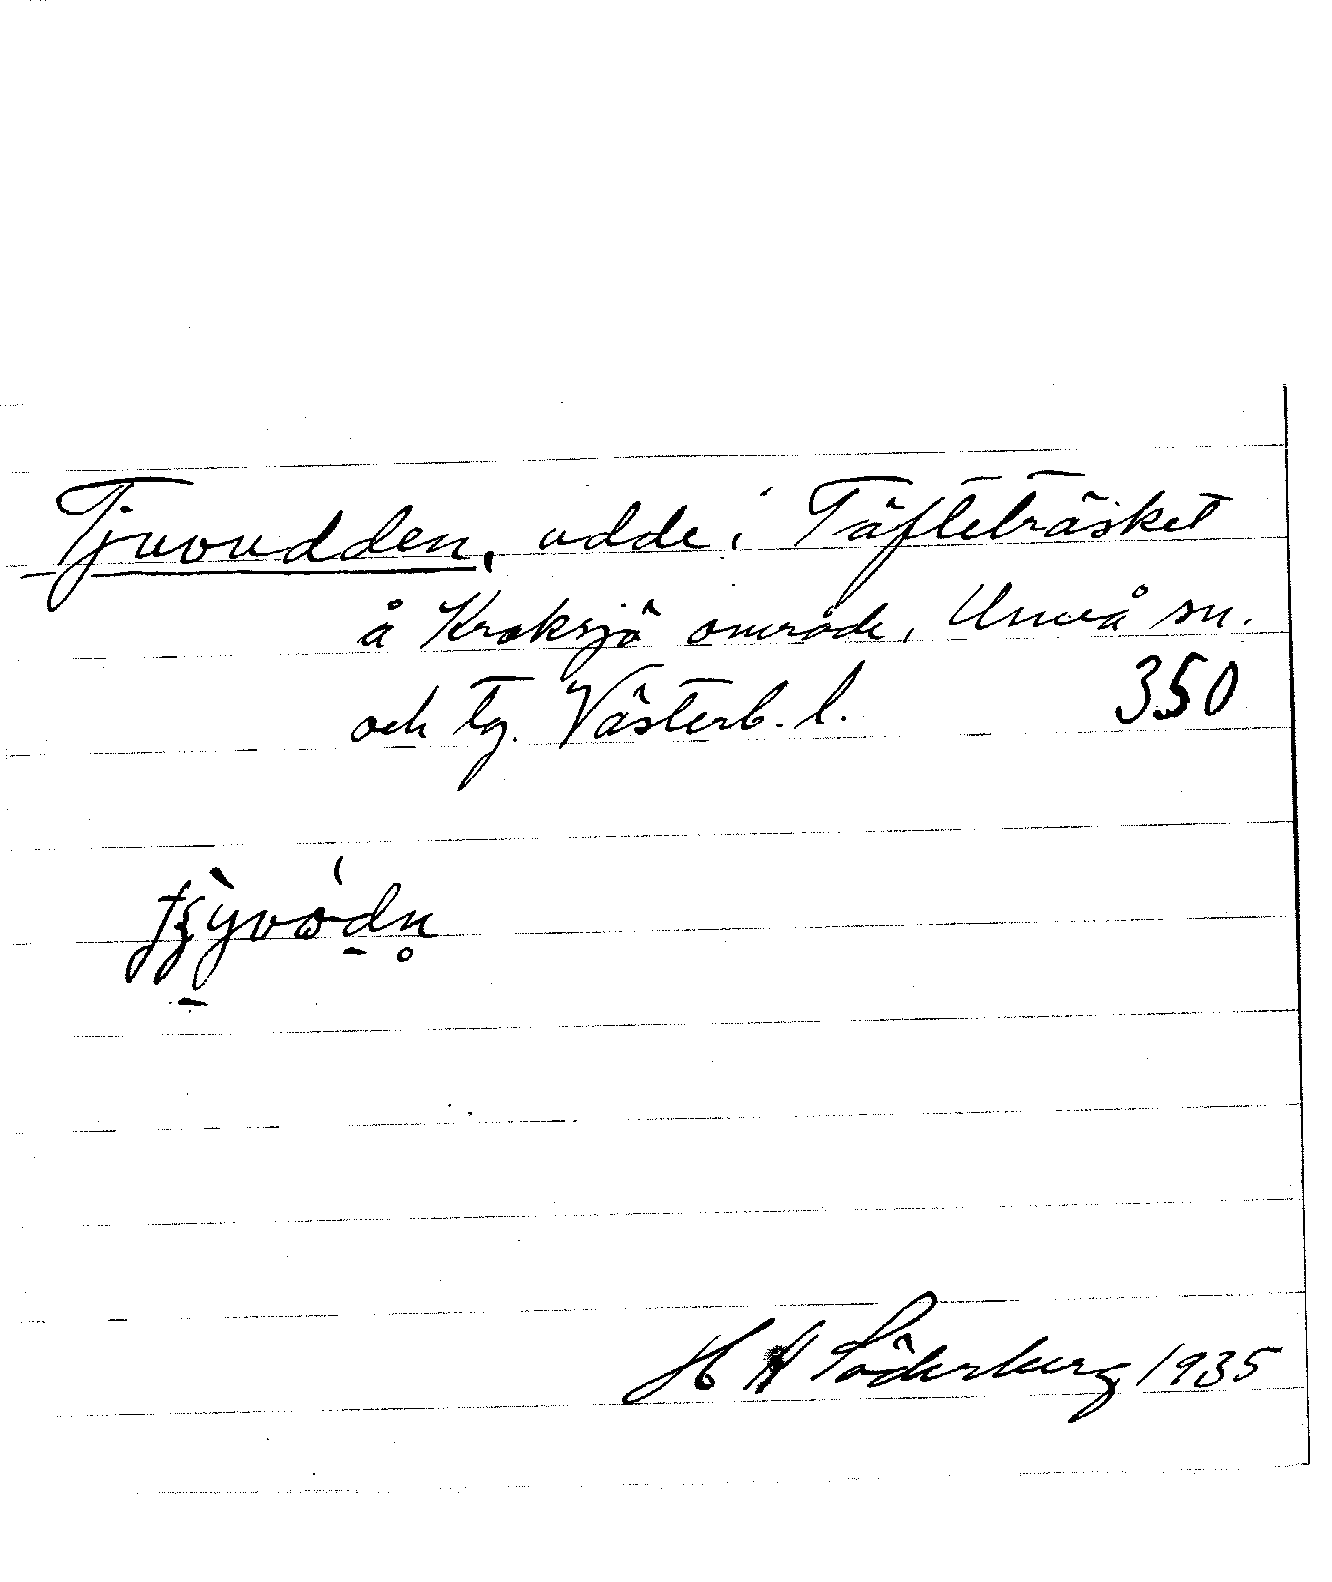 Tjuvudden, udde i Täfteträsket
å Kroksjö område, Umeå sn.
och tg. Västerb. l. 350
H A Söderberg 1935